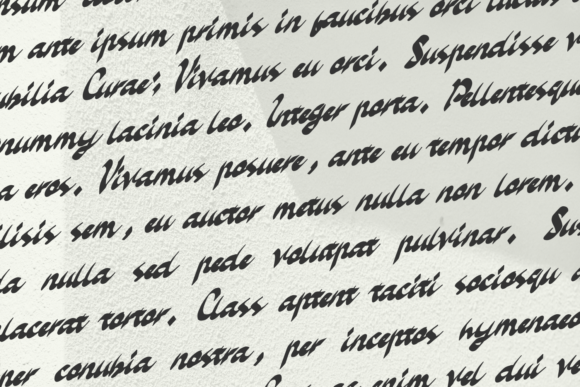 m ante ipsum primis in faucibus orci luctus
ubilia Curae; Vivamus eu orci. Suspendisse
nummy lacinia leo. Integer porta. Pellentesque
a eros. Vivamus posuere, ante eu tempor dictu
ilisis sem, eu auctor metus nulla non lorem.
la nulla sed pede volutpat pulvinar. Sus
lacerat tortor. Class aptent taciti sociosqu
per conubia nostra, per inceptos hymenaeo
enim vel dui ve